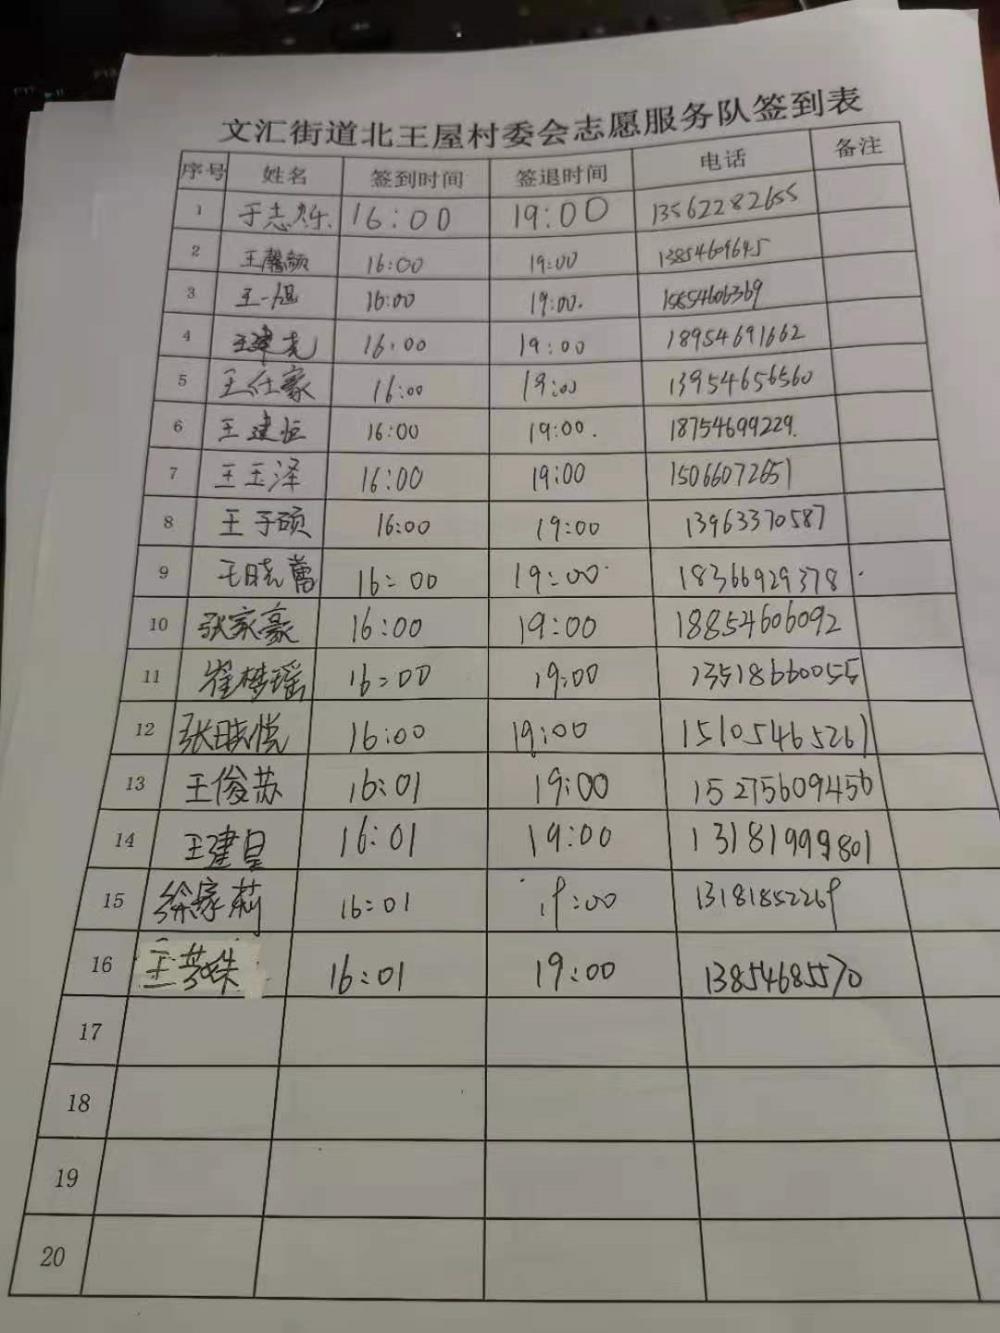 文汇街道北王屋村委会志愿服务队签到表
序号 姓名 签到时间 签退时间 电话 备注
1 于志烁 16:00 19:00 13562282655
2 王馨颜 16:00 19:00 13854609645
3 王一焜 16:00 19:00 15854606369
4 王建尧 16:00 19:00 18954691662
5 王仕豪 16:00 19:00 13954656560
6 王建恒 16:00 19:00 18754699229
7 王玉泽 16:00 19:00 15066072651
8 王子硕 16:00 19:00 13963370587
9 王晓蕾 16:00 19:00 18366929378
10 张家豪 16:00 19:00 18854606092
11 崔梦瑶 16:00 19:00 13518660055
12 张晓悦 16:00 19:00 15105465261
13 王俊苏 16:01 19:00 15275609456
14 王建皇 16:01 19:00 13181999801
15 徐家莉 16:01 19:00 13181852269
16 王梦姝 16:01 19:00 13854685570
17
18
19
20